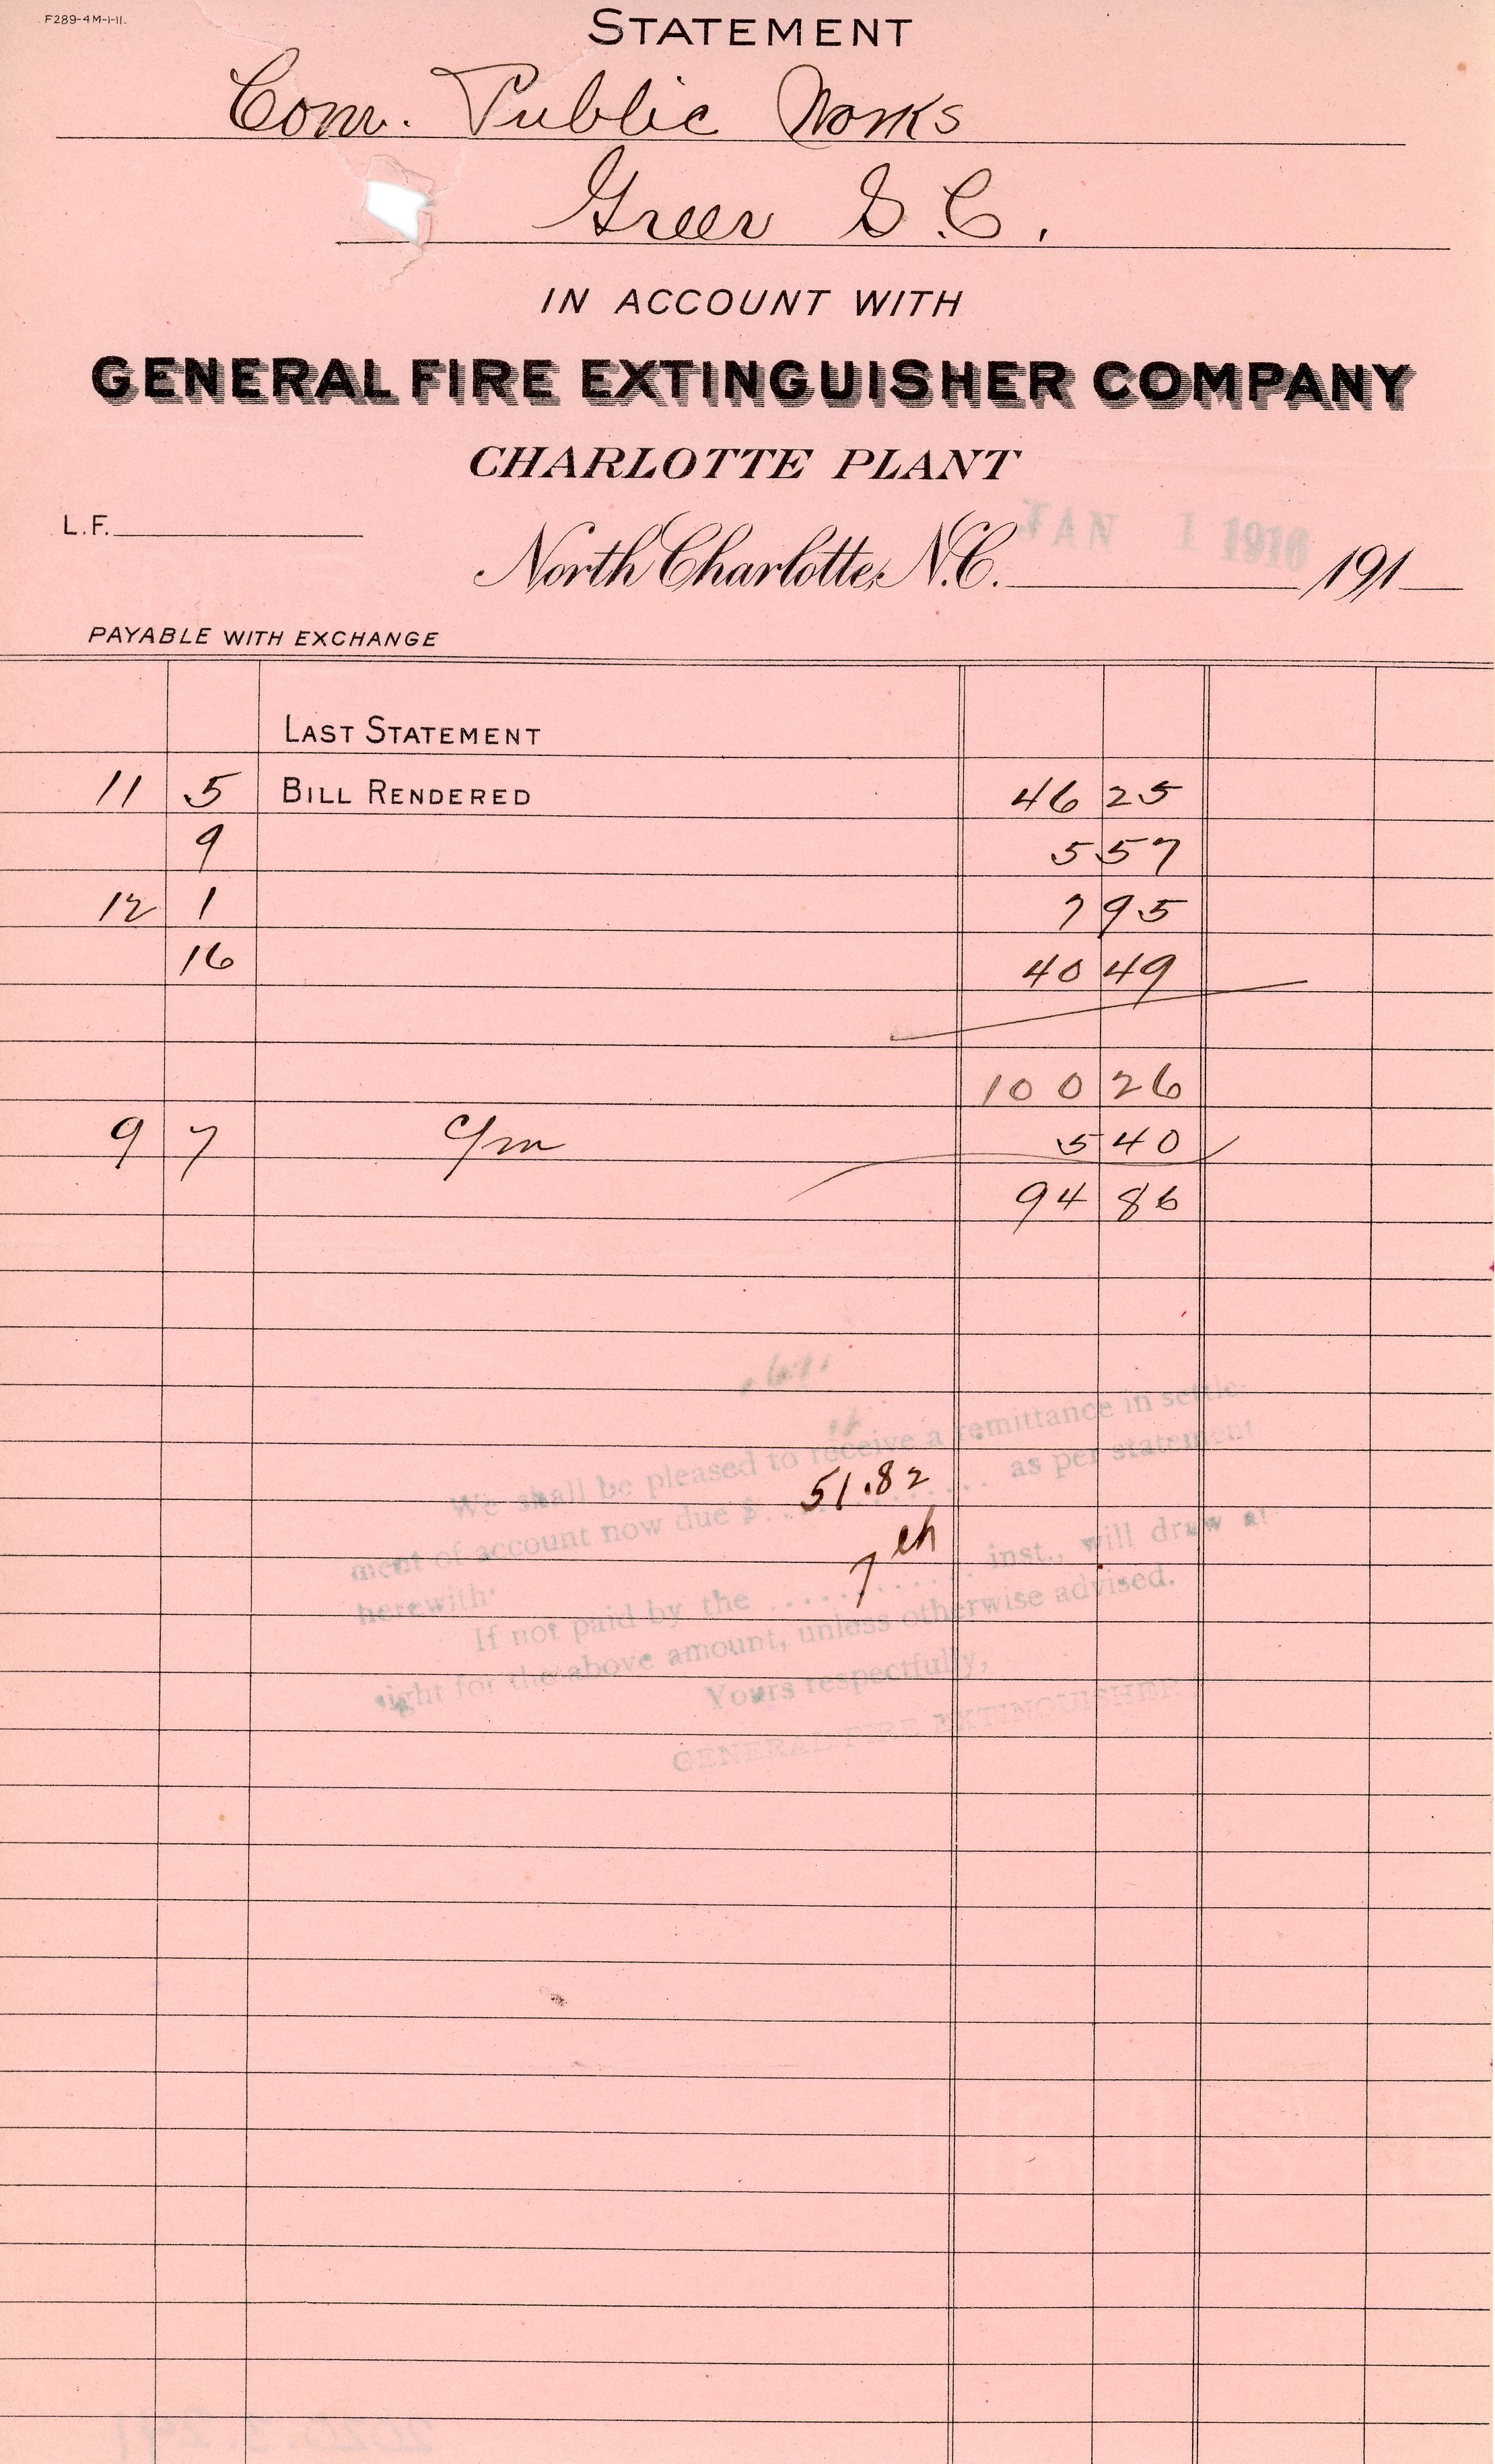 F289-4M-1-11.
STATEMENT
Com. Public Works
Greer S.C.
IN ACCOUNT WITH
GENERAL FIRE EXTINGUISHER COMPANY
CHARLOTTE PLANT
L.F.
JAN 1 1916
North Charlotte, N.C. 191
PAYABLE WITH EXCHANGE
LAST STATEMENT
11 5 BILL RENDERED 46 25
9 5 57
12 1 7 95
16 40 49
100 26
9 7 c/m 5 40
94 86
We shall be pleased to receive a remittance in settle-
ment of account now due $ 51.82 as per statement
herewith.
If not paid by the 7th inst., will draw at
sight for the above amount, unless otherwise advised.
Yours respectfully,
GENERAL FIRE EXTINGUISHER
2020.3.241